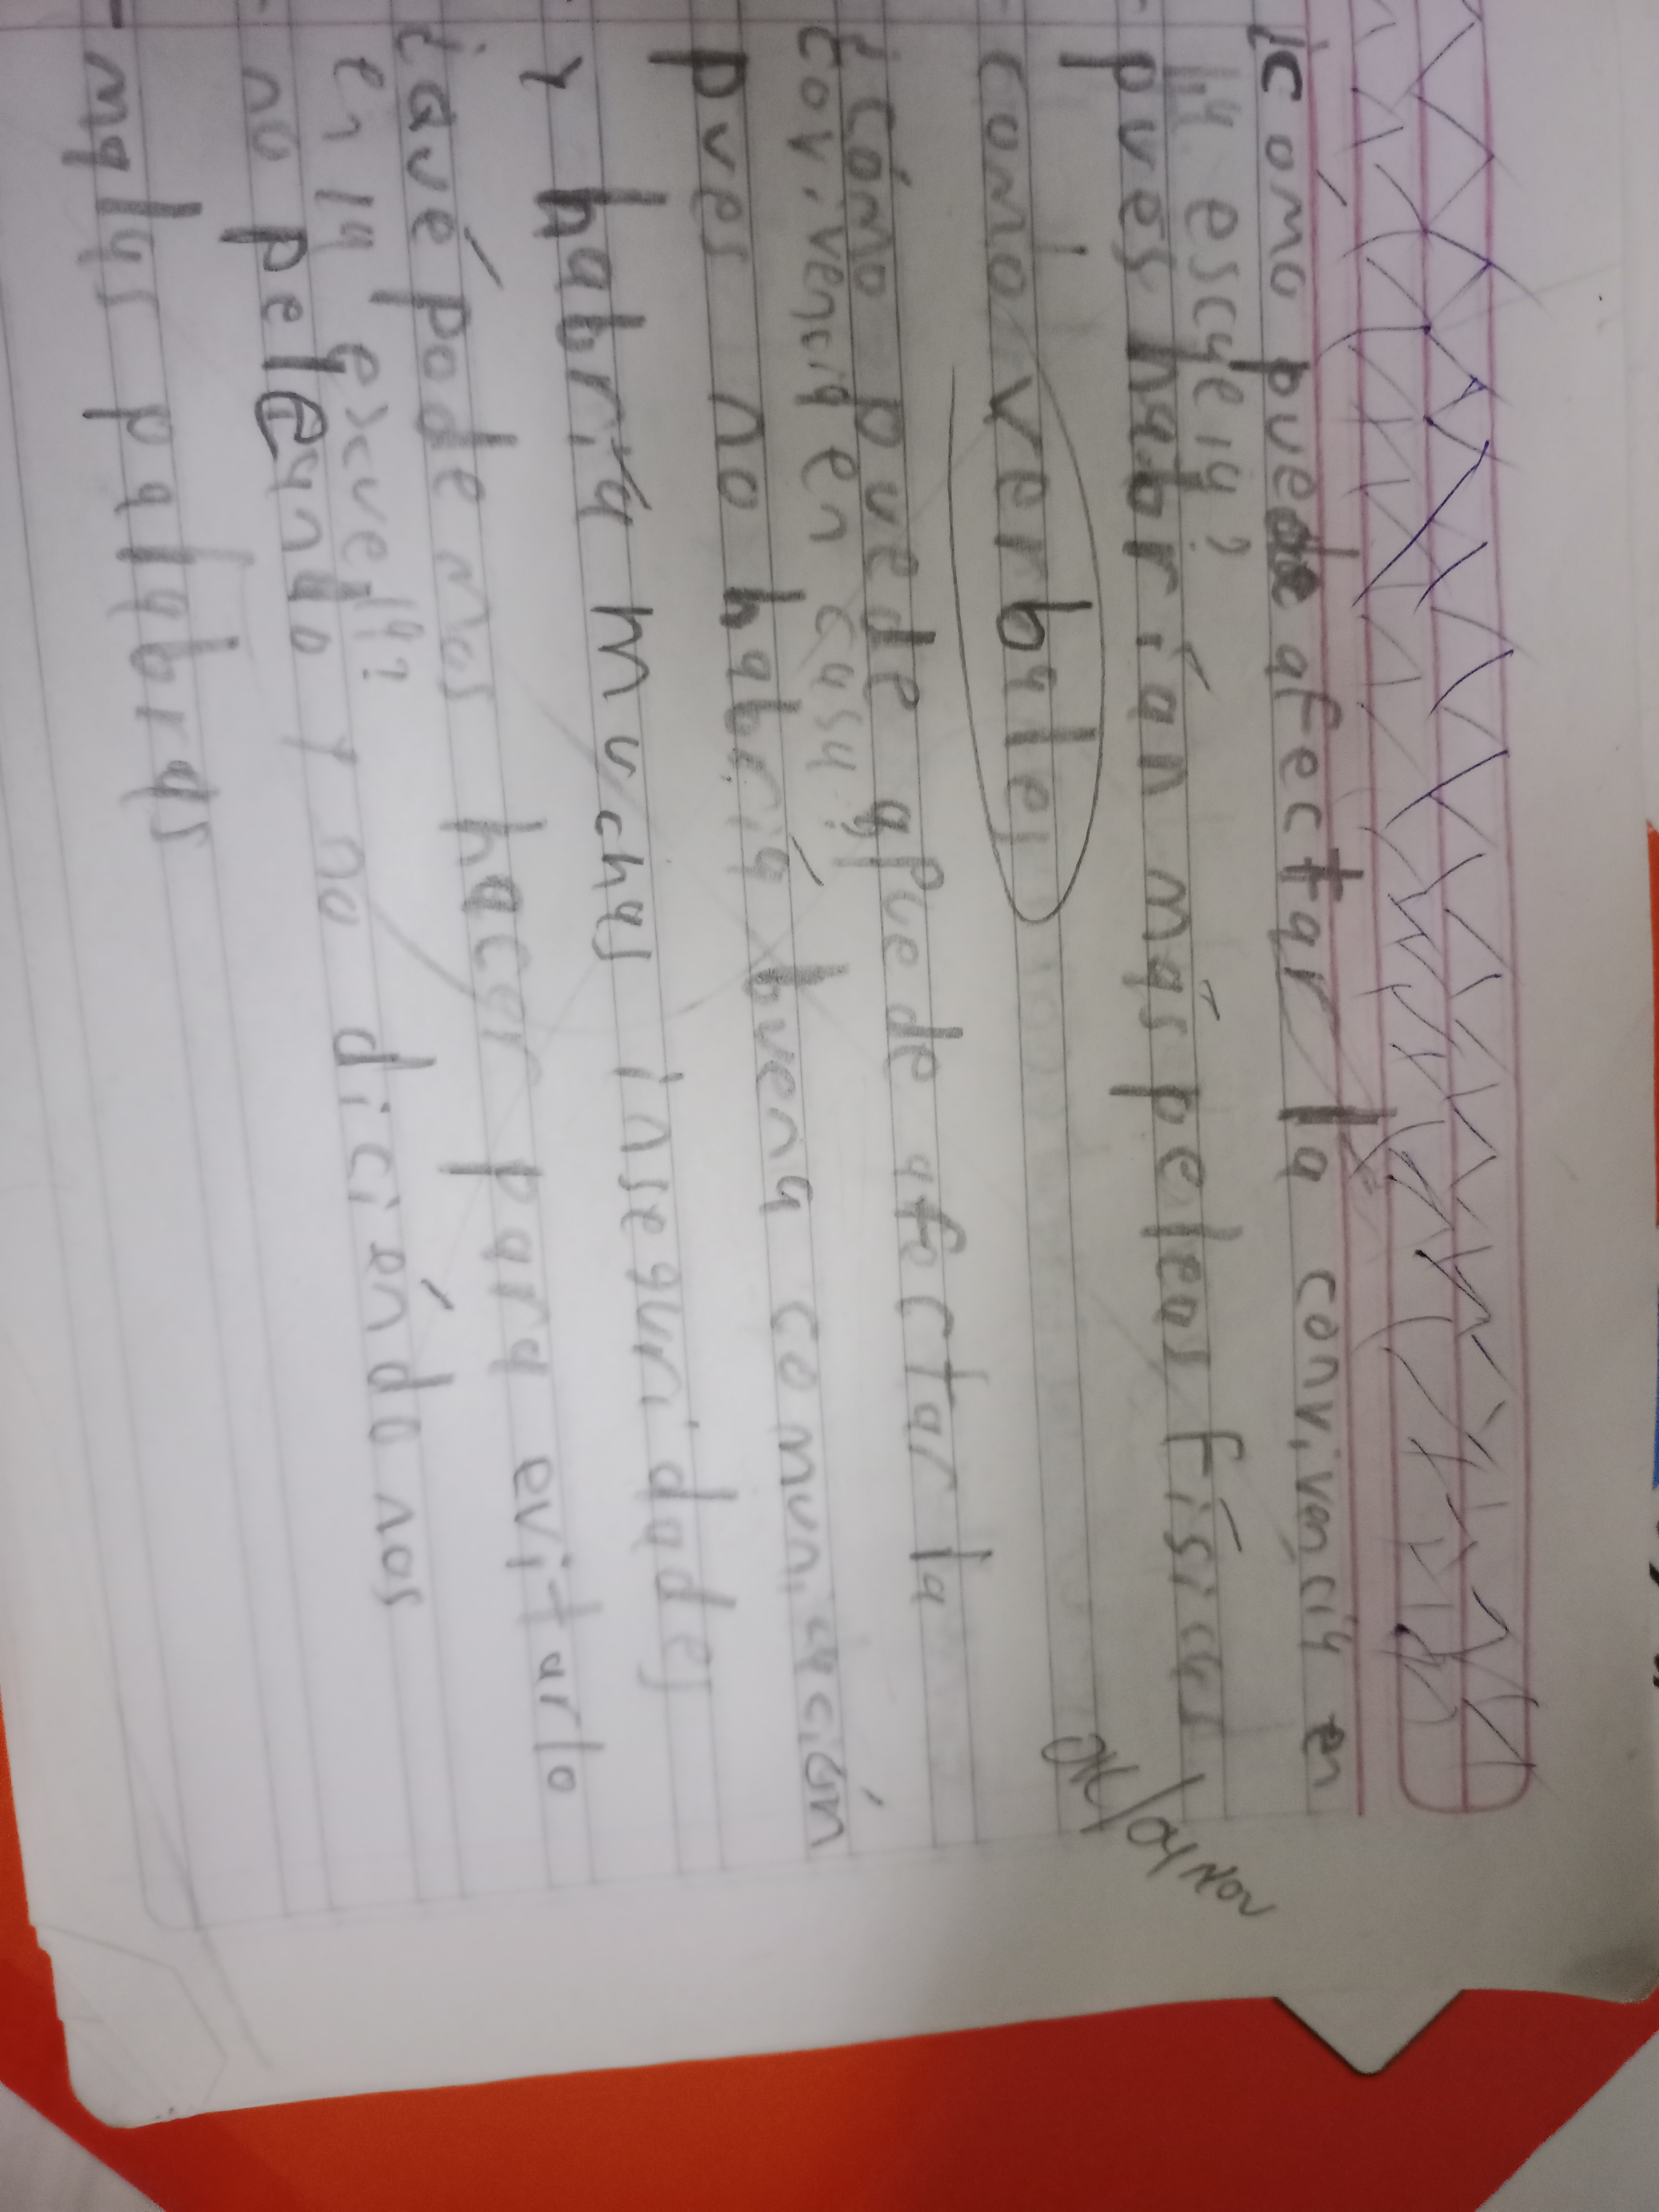 ¿Cómo puede afectar la convivencia en
la escueia?
pues habrían más peleas físicas
como verbales
OK/04 NOV
¿Cómo puede qpuede afectar la
convivencia en casa?
pues no habría buena comunicación
y habría muchas inseguridades
¿Qué podemos hacer para evitarlo
en la escuela?
no peleando y no diciéndonos
malas palabras